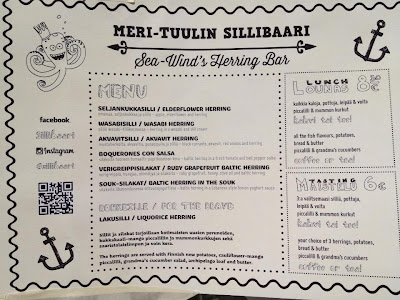 MERI-TUULIN SILLIBAARI
Sea-Wind's Herring Bar
facebook
Sillibaari
Instagram
@sillibaari
MENU
SELJANKUKKASILLI / ELDERFLOWER HERRING
WASABISILLI / WASABI HERRING
AKVAVIITSILLI / AKVAVIT HERRING
BOQUERONES CON SALSA
VERIGREIPPISILAKAT / RUBY GRAPEFRUIT BALTIC HERRING
SOUK-SILAKAT / BALTIC HERRING IN THE SOUK
ROHKEILLE / FOR THE BRAVE
LAKUSILLI / LIQUORICE HERRING
Sillit ja silakat tarjoillaan kotimaisten uusien perunoiden,
kukkakaali-mango piccalillin ja mummonkurkkujen sekä
saaristolaisleivän ja voin kera.
The herrings are served with Finnish new potatoes, cauliflower-mango
piccalilli, grandma's cucumber salad, archipelago loaf and butter.
LUNCH
LOUNAS 8,50€
kaikkia kaloja, pottuja, leipää & voita
piccalilli & mummon kurkut
kahvi tai tee!
all the fish flavours, potatoes,
bread & butter
piccalilli & grandma's cucumbers
coffee or tea!
TASTING
MAISTELU 6€
3:a valitsemaasi silliä, pottuja,
leipää & voita
piccalilli & mummon kurkut
kahvi tai tee!
your choice of 3 herrings, potatoes,
bread & butter
piccalilli & grandma's cucumbers
coffee or tea!